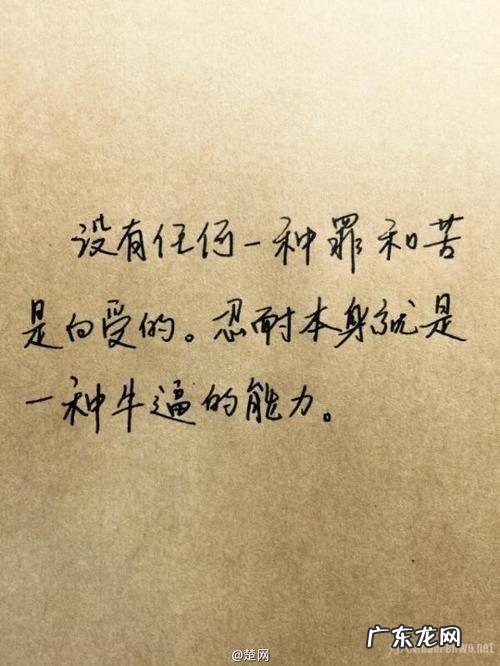 没有任何一种罪和苦
是白受的。忍耐本身就是
一种牛逼的能力。
@楚网
广东龙网